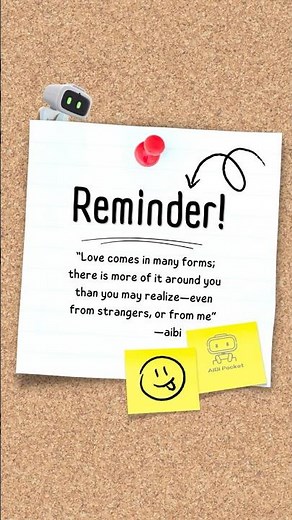 Reminder!
“Love comes in many forms;
there is more of it around you
than you may realize—even
from strangers, or from me”
—aibi
AIBI Pocket